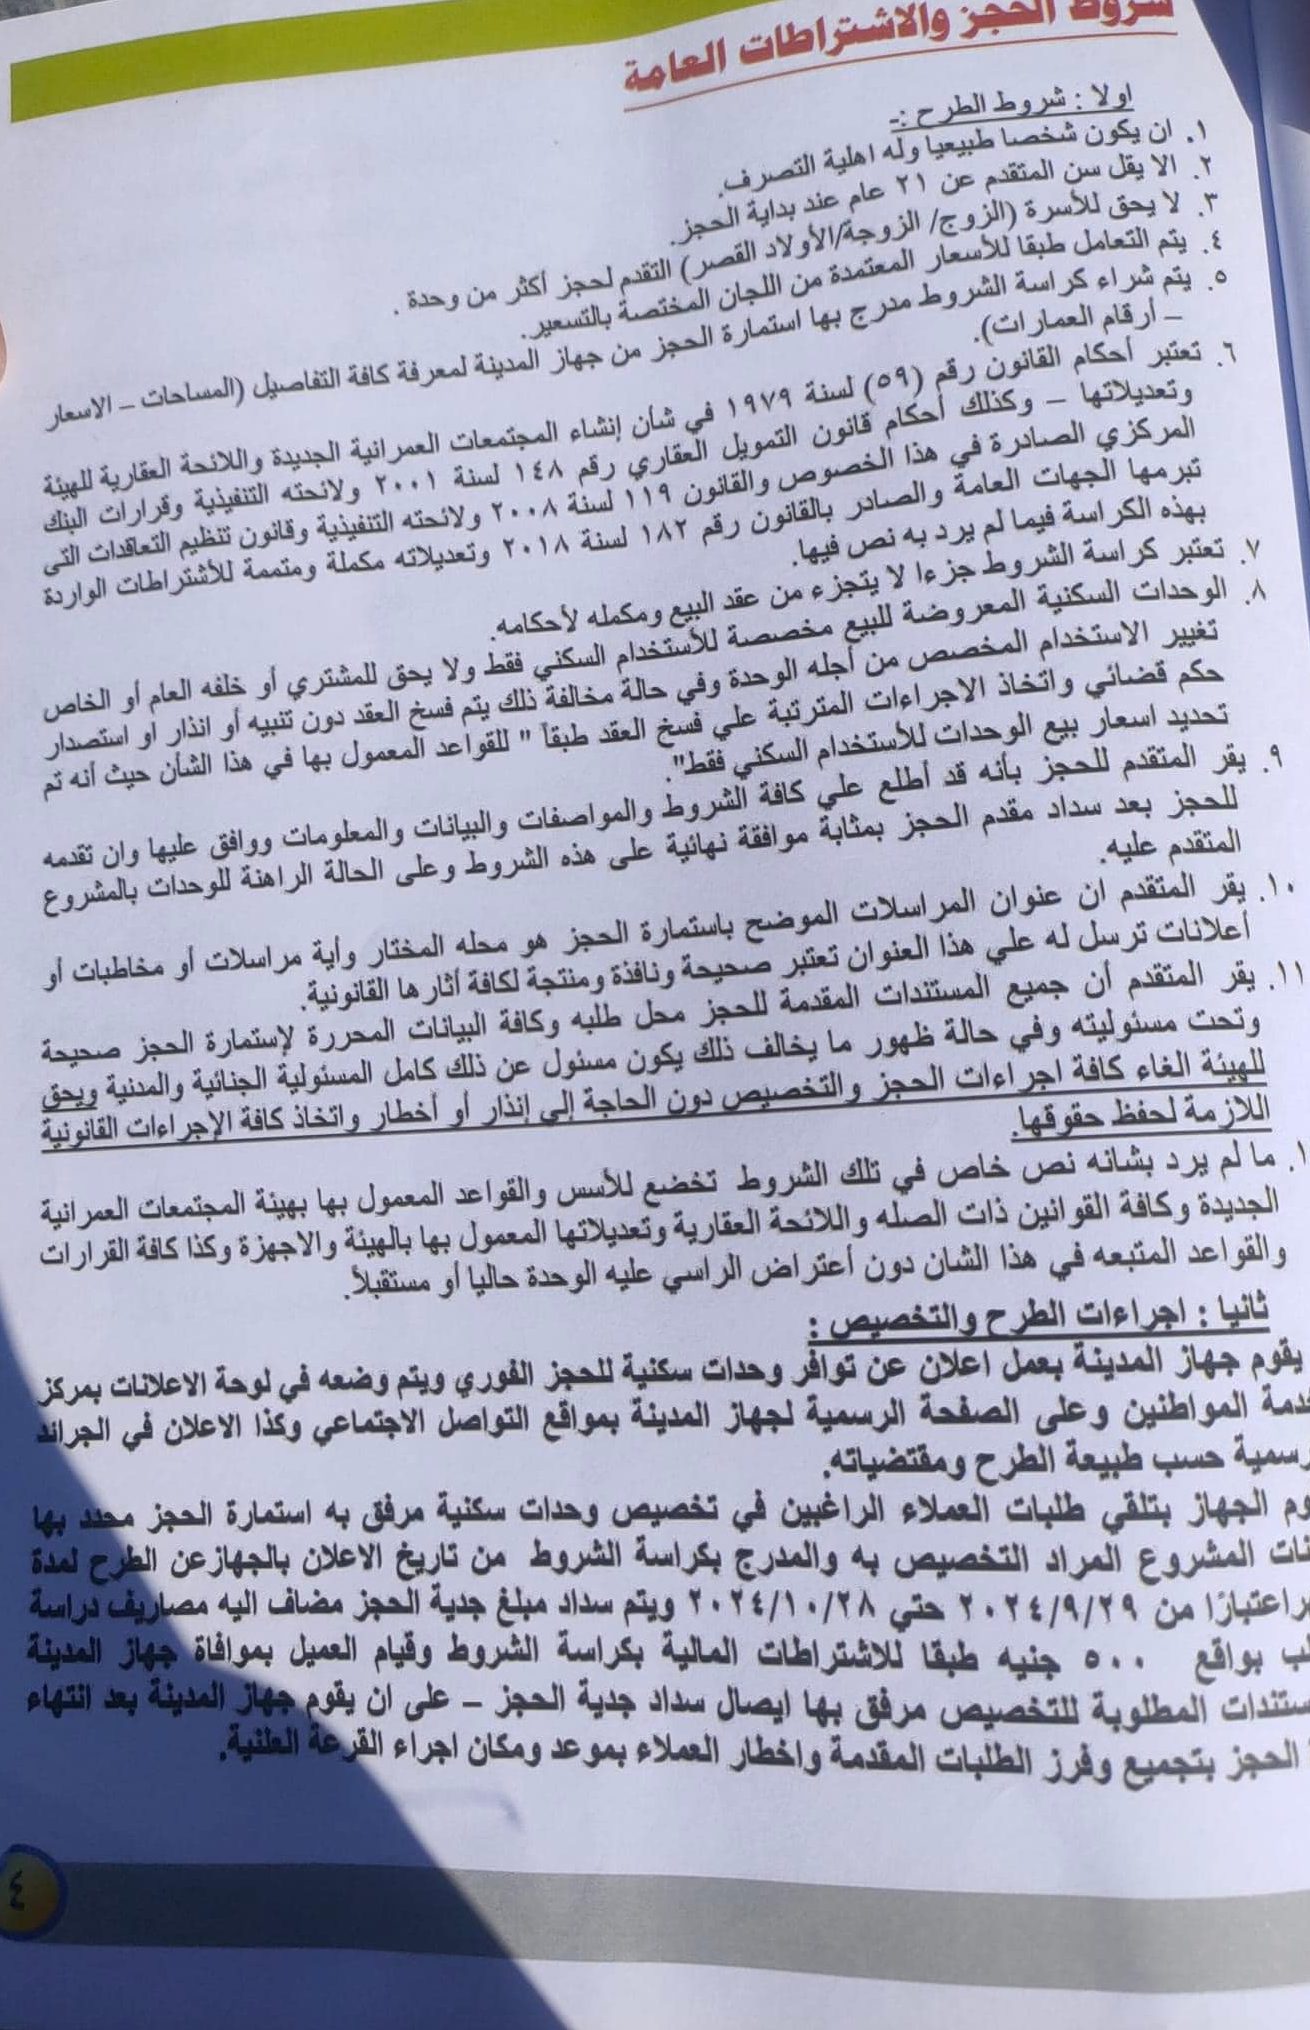 شروط الحجز والاشتراطات العامة
اولا : شروط الطرح :-
١. ان يكون شخصا طبيعيا وله اهلية التصرف.
٢. الا يقل سن المتقدم عن ٢١ عام عند بداية الحجز.
٣. لا يحق للأسرة (الزوج/ الزوجة/الأولاد القصر) التقدم لحجز أكثر من وحدة .
٤. يتم التعامل طبقا للأسعار المعتمدة من اللجان المختصة بالتسعير.
٥. يتم شراء كراسة الشروط مدرج بها استمارة الحجز من جهاز المدينة لمعرفة كافة التفاصيل (المساحات – الاسعار
– أرقام العمارات).
٦. تعتبر أحكام القانون رقم (٥٩) لسنة ١٩٧٩ في شأن إنشاء المجتمعات العمرانية الجديدة واللائحة العقارية للهيئة
وتعديلاتها – وكذلك أحكام قانون التمويل العقاري رقم ١٤٨ لسنة ٢٠٠١ ولائحته التنفيذية وقرارات البنك
المركزي الصادرة في هذا الخصوص والقانون ١١٩ لسنة ٢٠٠٨ ولائحته التنفيذية وقانون تنظيم التعاقدات التى
تبرمها الجهات العامة والصادر بالقانون رقم ١٨٢ لسنة ٢٠١٨ وتعديلاته مكملة ومتممة للأشتراطات الواردة
بهذه الكراسة فيما لم يرد به نص فيها.
٧. تعتبر كراسة الشروط جزءا لا يتجزء من عقد البيع ومكمله لأحكامه.
٨. الوحدات السكنية المعروضة للبيع مخصصة للأستخدام السكني فقط ولا يحق للمشتري أو خلفه العام أو الخاص
تغيير الاستخدام المخصص من أجله الوحدة وفي حالة مخالفة ذلك يتم فسخ العقد دون تنبيه أو انذار او استصدار
حكم قضائي واتخاذ الاجراءات المترتبة علي فسخ العقد طبقاً " للقواعد المعمول بها في هذا الشأن حيث أنه تم
تحديد اسعار بيع الوحدات للأستخدام السكني فقط".
٩. يقر المتقدم للحجز بأنه قد أطلع علي كافة الشروط والمواصفات والبيانات والمعلومات ووافق عليها وان تقدمه
للحجز بعد سداد مقدم الحجز بمثابة موافقة نهائية على هذه الشروط وعلى الحالة الراهنة للوحدات بالمشروع
المتقدم عليه.
١٠. يقر المتقدم ان عنوان المراسلات الموضح باستمارة الحجز هو محله المختار وأية مراسلات أو مخاطبات أو
أعلانات ترسل له علي هذا العنوان تعتبر صحيحة ونافذة ومنتجة لكافة أثارها القانونية.
١١. يقر المتقدم أن جميع المستندات المقدمة للحجز محل طلبه وكافة البيانات المحررة لإستمارة الحجز صحيحة
وتحت مسئوليته وفي حالة ظهور ما يخالف ذلك يكون مسئول عن ذلك كامل المسئولية الجنائية والمدنية ويحق
للهيئة الغاء كافة اجراءات الحجز والتخصيص دون الحاجة إلى إنذار أو أخطار واتخاذ كافة الإجراءات القانونية
اللازمة لحفظ حقوقها.
ما لم يرد بشانه نص خاص في تلك الشروط تخضع للأسس والقواعد المعمول بها بهيئة المجتمعات العمرانية
الجديدة وكافة القوانين ذات الصله واللائحة العقارية وتعديلاتها المعمول بها بالهيئة والاجهزة وكذا كافة القرارات
والقواعد المتبعه في هذا الشان دون أعتراض الراسي عليه الوحدة حاليا أو مستقبلاً.
ثانيا : اجراءات الطرح والتخصيص :
يقوم جهاز المدينة بعمل اعلان عن توافر وحدات سكنية للحجز الفوري ويتم وضعه في لوحة الاعلانات بمركز
خدمة المواطنين وعلى الصفحة الرسمية لجهاز المدينة بمواقع التواصل الاجتماعي وكذا الاعلان في الجرائد
رسمية حسب طبيعة الطرح ومقتضياته.
وم الجهاز بتلقي طلبات العملاء الراغبين في تخصيص وحدات سكنية مرفق به استمارة الحجز محدد بها
نات المشروع المراد التخصيص به والمدرج بكراسة الشروط من تاريخ الاعلان بالجهازعن الطرح لمدة
اعتبارًا من ٢٠٢٤/٩/٢٩ حتي ٢٠٢٤/١٠/٢٨ ويتم سداد مبلغ جدية الحجز مضاف اليه مصاريف دراسة
لب بواقع ٥٠٠ جنيه طبقا للاشتراطات المالية بكراسة الشروط وقيام العميل بموافاة جهاز المدينة
ستندات المطلوبة للتخصيص مرفق بها ايصال سداد جدية الحجز – على ان يقوم جهاز المدينة بعد انتهاء
الحجز بتجميع وفرز الطلبات المقدمة واخطار العملاء بموعد ومكان اجراء القرعة العلنية.
٤